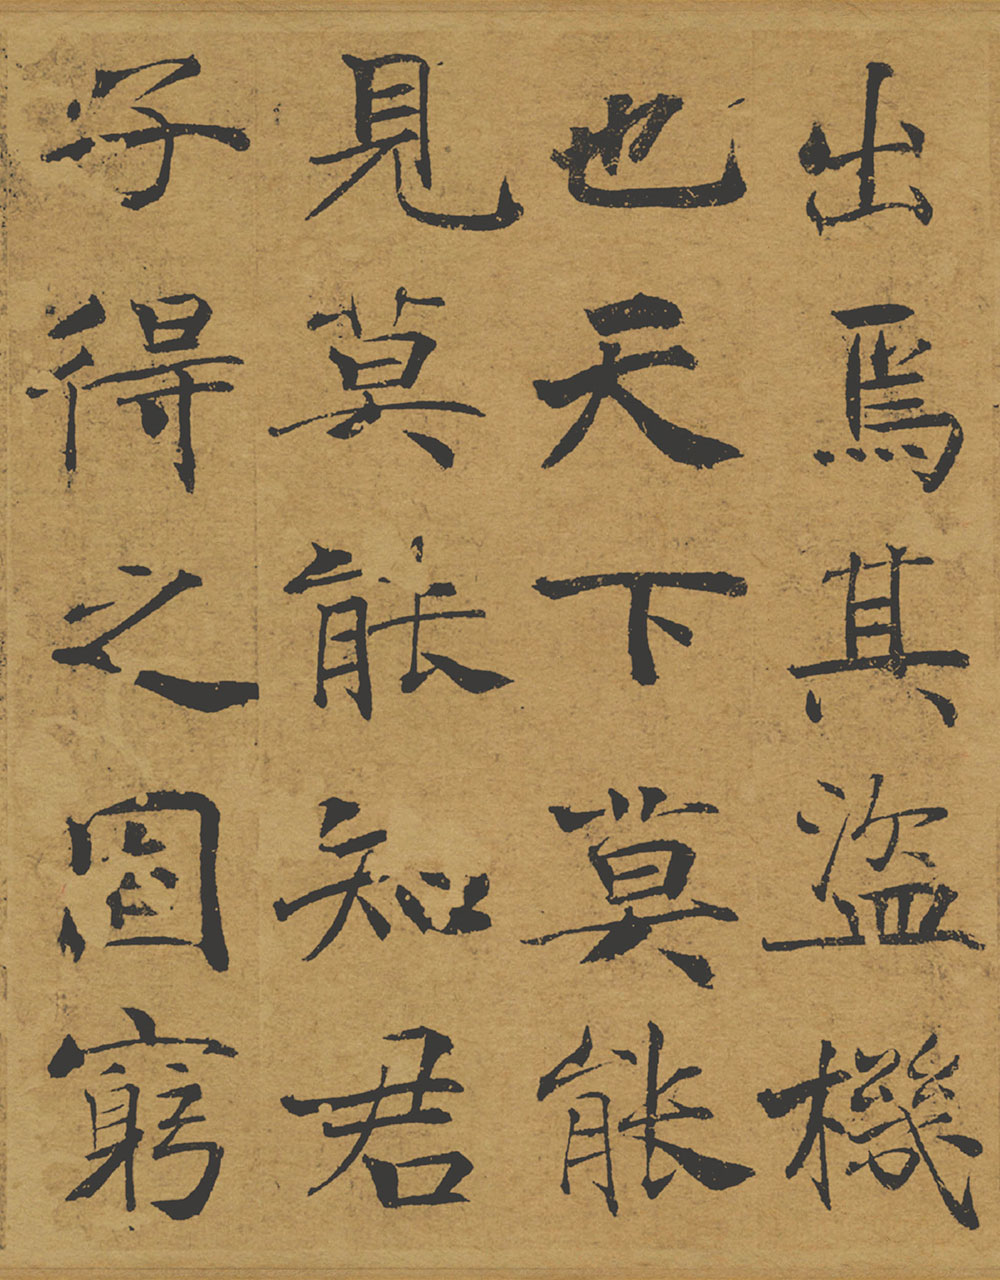 出焉其盜機
也天下莫能
見莫能知君
子得之固窮